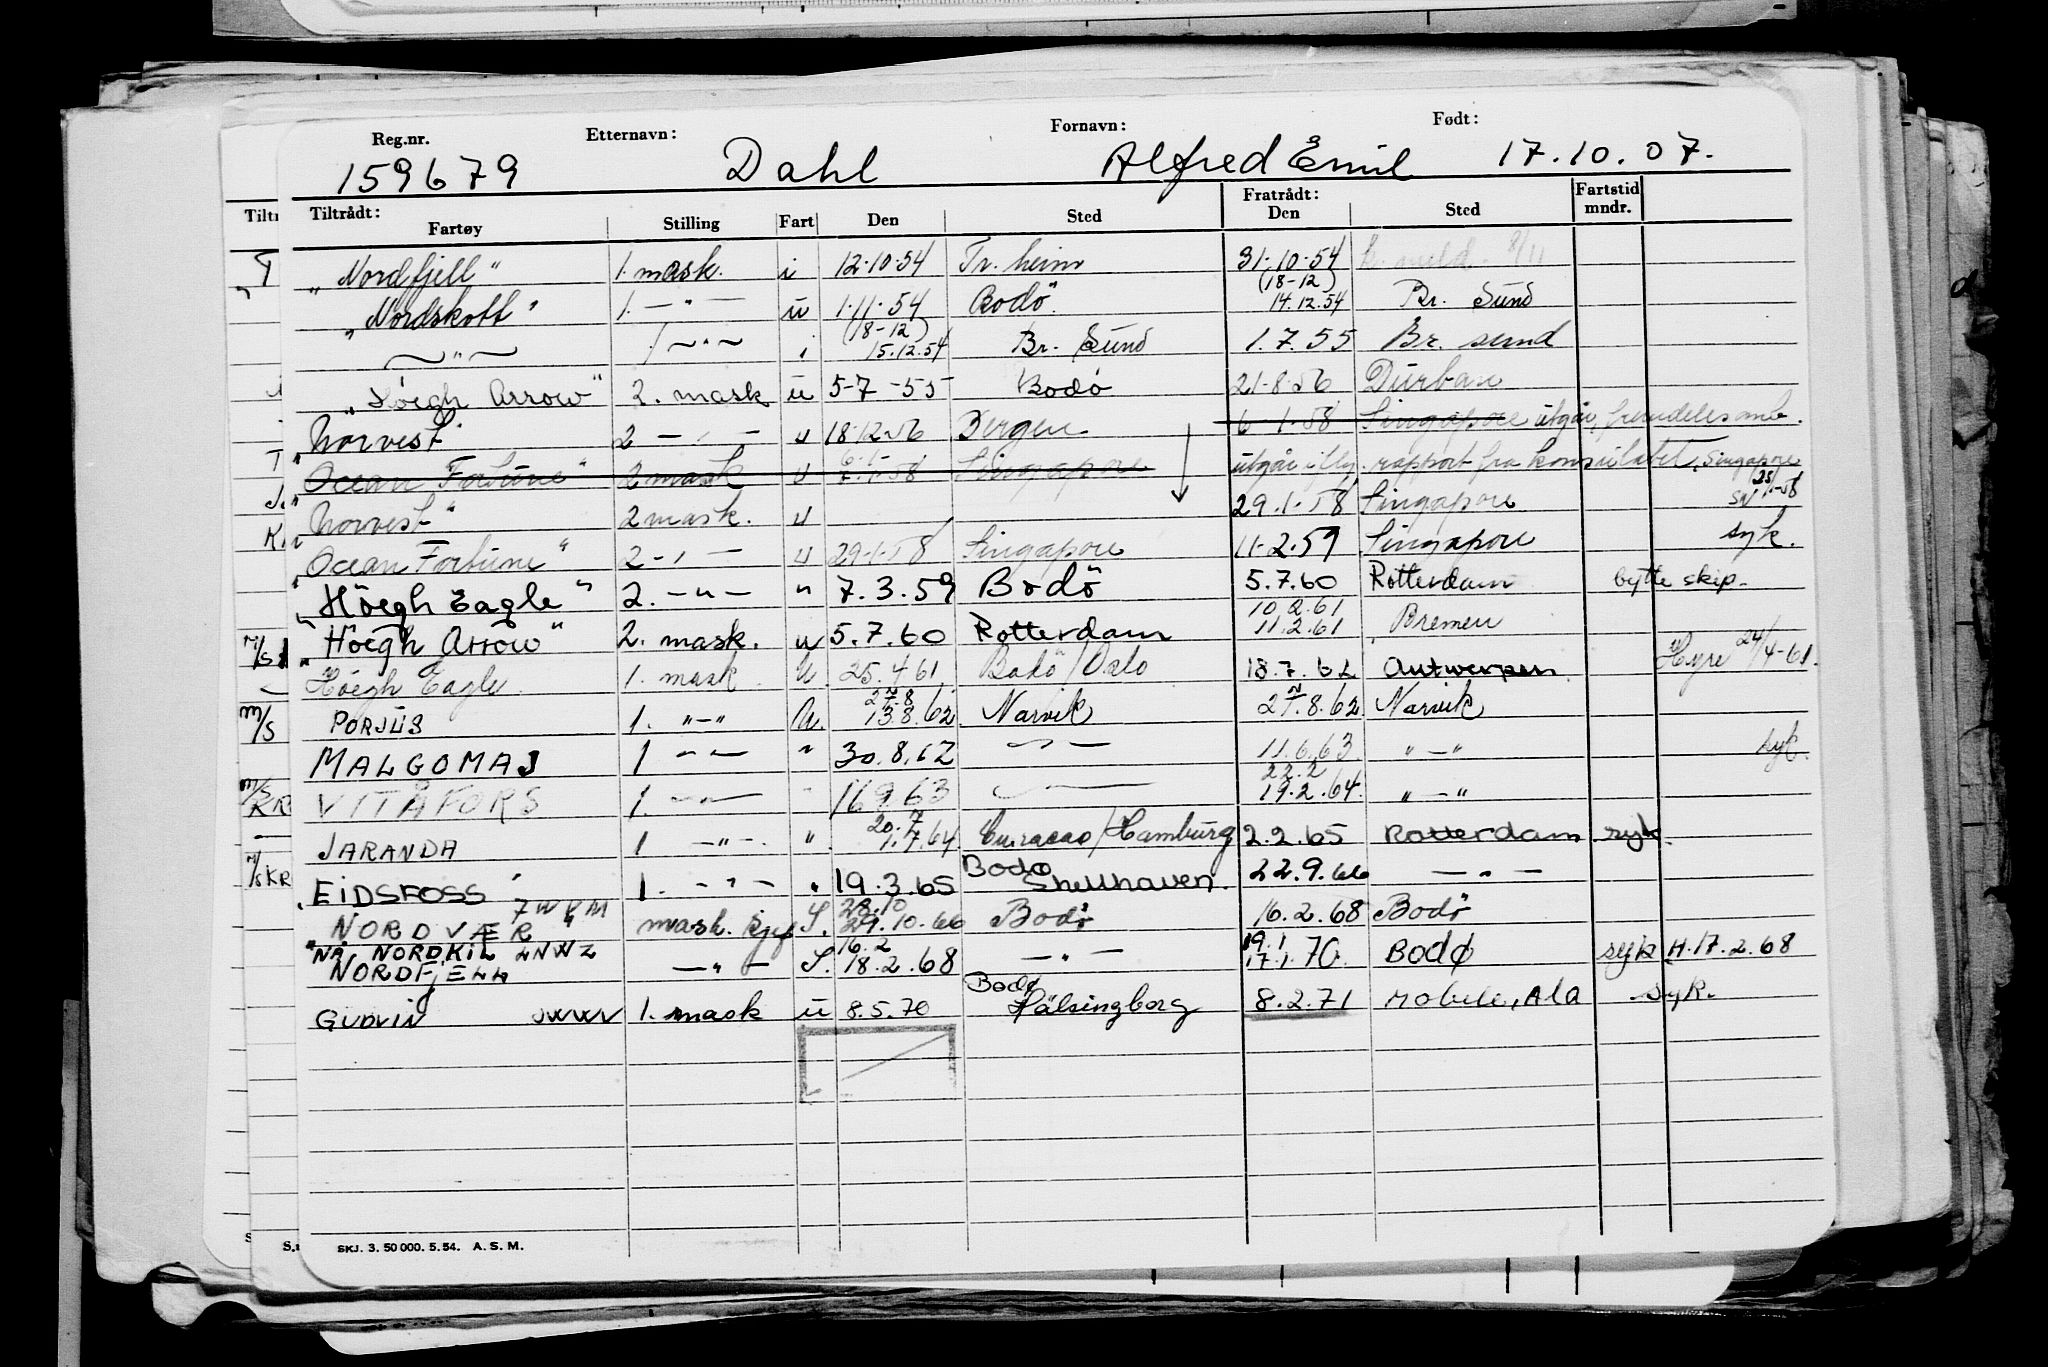 Reg.nr. Etternavn: Fornavn: Født:
159679 Dahl Alfred Emil 17.10.07.
Tiltrådt: Fratrådt: Fartstid
Fartøy Stilling Fart Den Sted Den Sted mndr.
"Nordfjell" 1. mask. i 12.10.54 Tr. heim 31.10.54 8/11
"Nordskott" 1. — " — u 1.11.54 Bodö. (18-12) 14.12.54 Br. Sund
— " — 1 — " — i (18-12) 15.12.54 Br. Sund 1.7.55 Br. sund
"Höegh Arrow" 2. mask u 5-7-55 Bodö 21-8-56 Durban
"Norvest" 2 — " — u 18.12.56 Bergen 6-1-58 Singapore utgår, fremdeles omb.
"Ocean Fortune" 2 mask u 6.1 7.1.58 Singapore utgår iflg. rapport fra konsulatet, Singapore 25/1-58
"Norvest" 2 mask. u 29.1.58 Singapore
"Ocean Fortune" 2 — " — u 29-1-58 Singapore 11-2.59 Singapore syk.
"Höegh Eagle" 2. — " — " 7.3.59 Bodö 5.7.60 Rotterdam bytte skip.
"Höegh Arrow" 2. mask. u 5.7.60 Rotterdam 10.2.61 11.2.61 Bremen
Höegh Eagle 1. mask. U. 25.4.61 Bodö/Oslo 18.7.62 Antwerpen Hyre 24/4-61.
PORJUS 1. " — " U. 27.8 13.8.62 Narvik 27.8.62 Narvik
MALGOMAJ 1 — " — " 30.8.62 — " — 11.6.63 " — " syk.
VITÅFORS 1. — " — " 16.9.63 — " — 22.2 19.2.64. " — "
JARANDA 1 — " — ". 20.7 1.7.64 Curacao/Hamburg 2.2.65 Rotterdam syk.
EIDSFOSS 1. — " — " 19.3.65 Bodø Shellhaven. 22.9.66 — " —
NORDVÆR mask. S. 28.10 29.10.66 Bodö 16.2.68 Bodö
"NÅ, NORDKIL LNWZ
NORDFJELL — " — S. 16.2 18.2.68 — " — 19.1 17.1.70. BODØ syk H. 17.2.68
GUDVIN JWWV 1. mask u 8.5.70 Bodø Hälsingborg 8.2.71 Mobile, Ala syk.
SKJ. 3. 50 000. 5. 54. A. S. M.